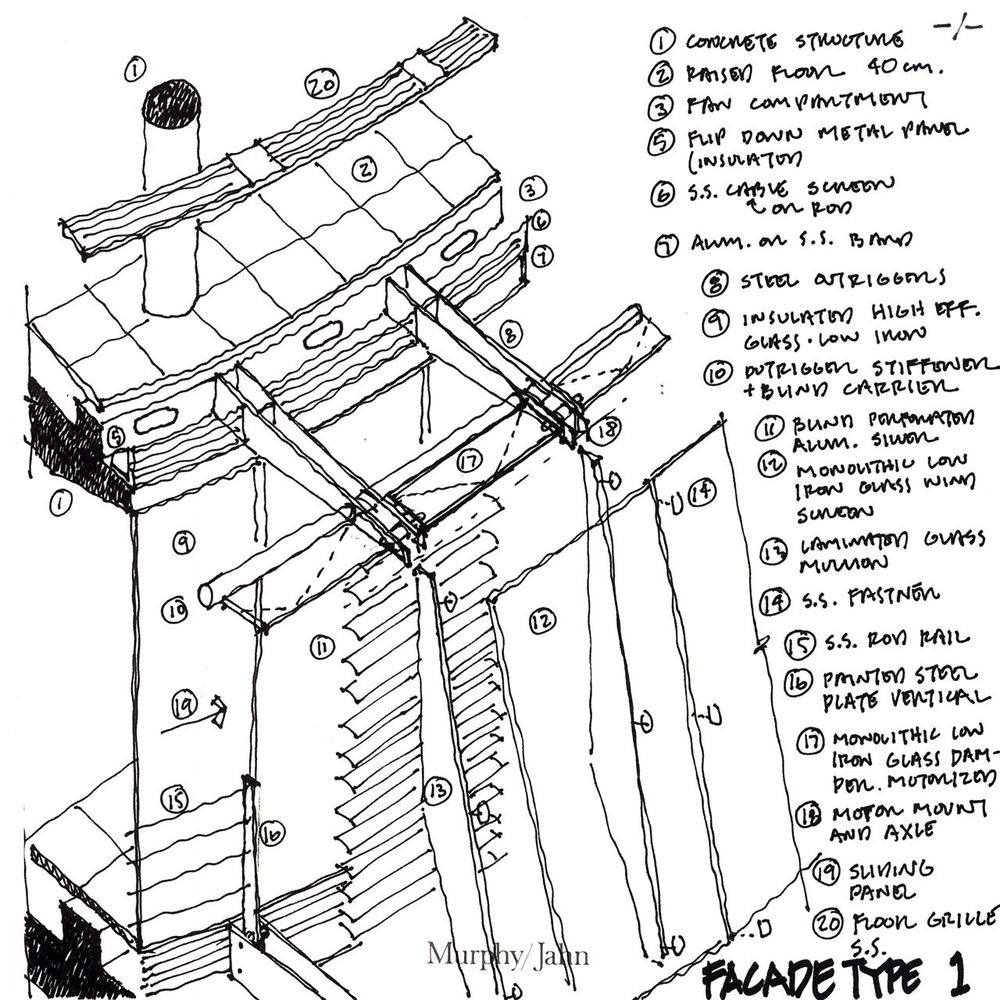 -/-
① CONCRETE STRUCTURE
② RAISED FLOOR 40 cm.
③ FAN COMPARTMENT
⑤ FLIP DOWN METAL PANEL
(INSULATED
⑥ S.S. CABLE SCREEN
OR ROD
⑦ ALUM. OR S.S. BAND
⑧ STEEL OUTRIGGERS
⑨ INSULATED HIGH EFF.
GLASS · LOW IRON
⑩ OUTRIGGER STIFFENER
+ BLIND CARRIER
⑪ BLIND PERFORATED
ALUM. SILVER
⑫ MONOLITHIC LOW
IRON GLASS WIND
SCREEN
⑬ LAMINATED GLASS
MULLION
⑭ S.S. FASTNER
⑮ S.S. ROD RAIL
⑯ PAINTED STEEL
PLATE VERTICAL
⑰ MONOLITHIC LOW
IRON GLASS DAM-
PER. MOTORIZED
⑱ MOTOR MOUNT
AND AXLE
⑲ SLIDING
PANEL
⑳ FLOOR GRILLE
S.S.
FACADE TYPE 1
①
⑳
②
③
⑥
⑦
⑧
⑤
⑱
⑰
①
⑭
⑨
⑩
⑪
⑫
⑲
⑮
⑬
⑯
Murphy/Jahn